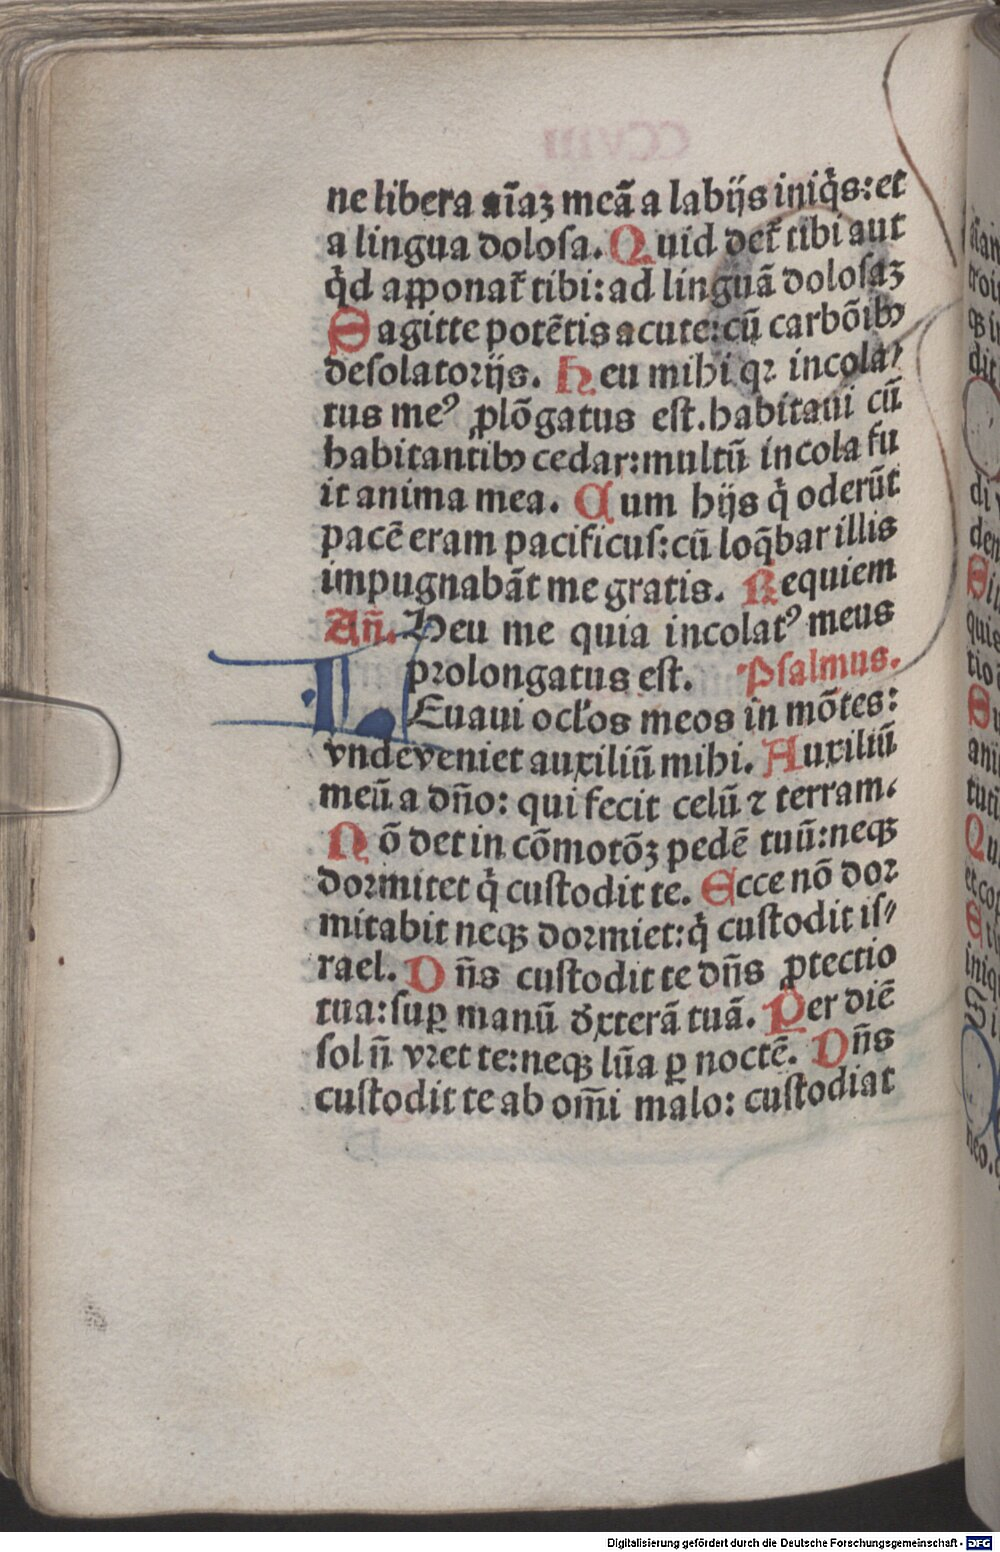 ne libera aīaꝫ meā a labijs iniq̇s: et
a lingua dolosa. Quid det᷑ tibi aut
q̇d apponat᷑ tibi: ad linguā dolosaꝫ
Sagitte potētis acute: cū carbōibꝰ
desolatorijs. Heu mihi qꝛ incola⸗
tus meꝰ ꝓlōgatus est. habitaui cū
habitantibꝰ cedar: multū incola fu
it anima mea. Cum hijs q̇ oderūt
pacē eram pacificus: cū loq̄bar illis
impugnabāt me gratis. Requiem
Añ. Heu me quia incolatꝰ meus
prolongatus est. Psalmus.
LEuaui ocl'os meos in mōtes:
vnde veniet auxiliū mihi. Auxiliū
meū a dño: qui fecit celū ⁊ terram.
Nō det in cōmotōꝫ pedē tuū: neqꝫ
dormitet q̇ custodit te. Ecce nō dor
mitabit neqꝫ dormiet: q̇ custodit is⸗
rael. Dñs custodit te dñs ꝓtectio
tua: suꝑ manū dexterā tuā. Per diē
sol ñ vret te: neqꝫ lūa ꝑ noctē. Dñs
custodit te ab om̄i malo: custodiat
Digitalisierung gefördert durch die Deutsche Forschungsgemeinschaft - DFG